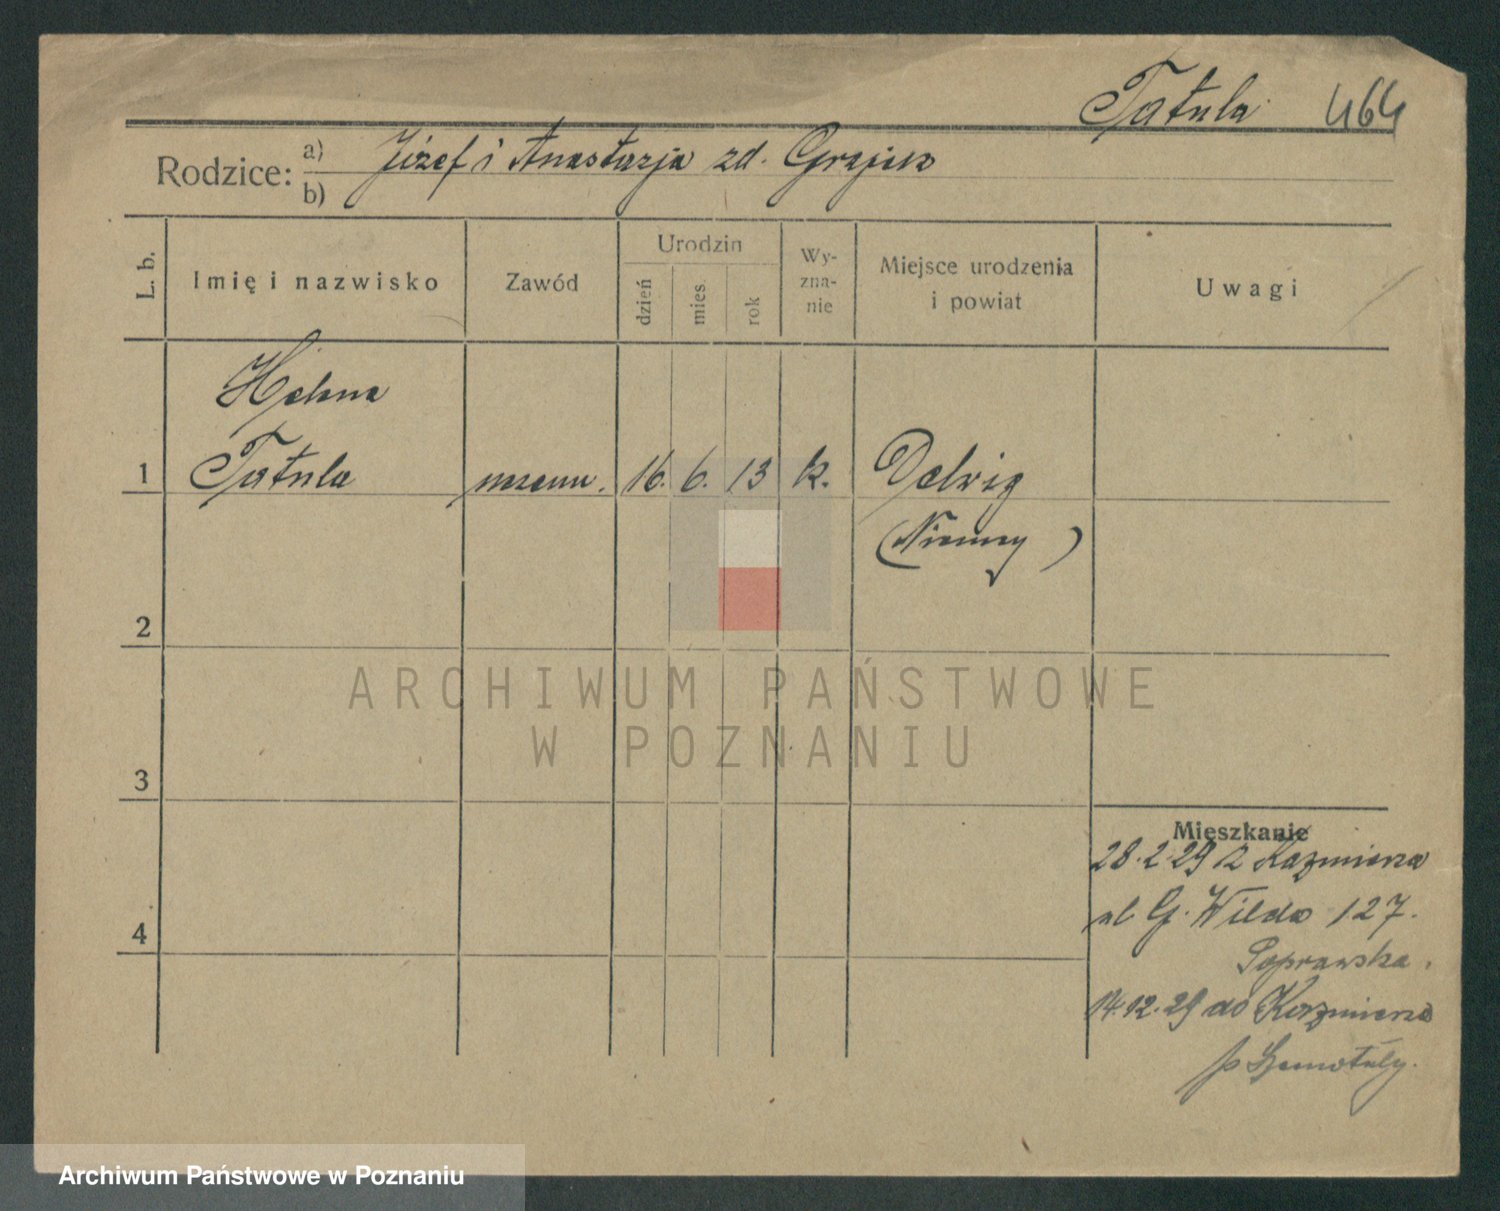 Tatula 464
Rodzice:
a) Józef i Anastazja zd. Grajek
b)
L. b.
Imię i nazwisko
Zawód
Urodzin
dzień
mies.
rok
Wy-
zna-
nie
Miejsce urodzenia
i powiat
Uwagi
Helena
1 Tatula 16. 6. 13 k. Delwig
(Niemcy)
2
3
4
Mieszkanie
28.2.29 z Kazmierza
ul G. Wilda 127.
Poprawska.
14.12.29 do Kazmierza
p Szamotuły.
ARCHIWUM PAŃSTWOWE
W POZNANIU
Archiwum Państwowe w Poznaniu